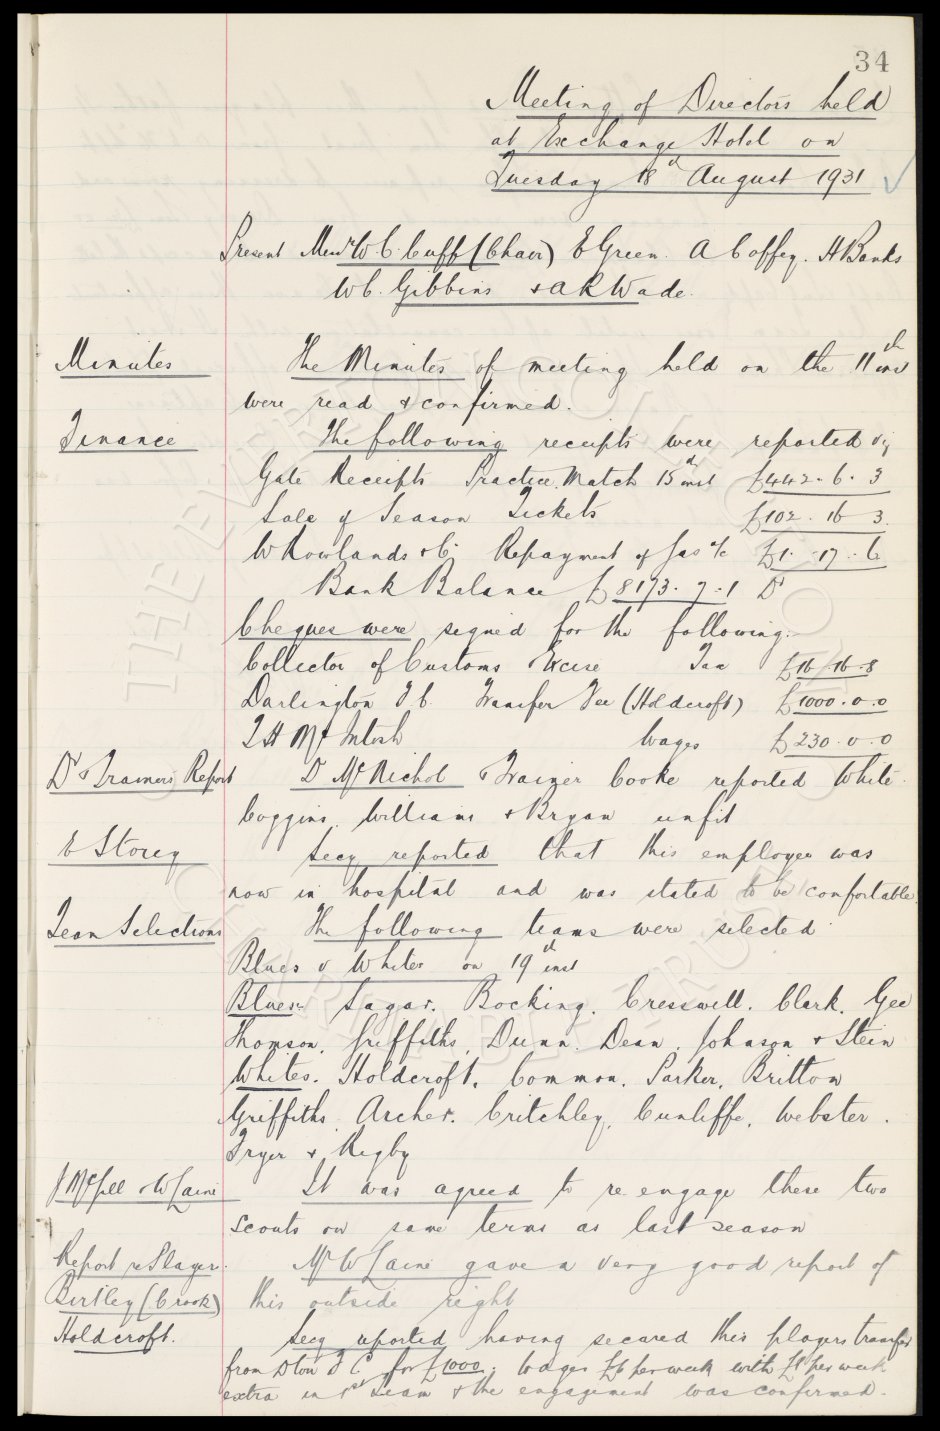 34
Meeting of Directors held
at Exchange Hotel on
Tuesday 18th August 1931
Present Messrs W C Cuff (Chair) E Green. A Coffey. H Banks
W C. Gibbins & A R Wade.
Minutes The Minutes of meeting held on the 11th inst
were read & confirmed.
Finance The following receipts were reported viz
Gate Receipts Practice Match 15th inst £442. 6. 3
Sale of Season Tickets £102. 16 3.
W Rowlands & Co Repayment of Gas a/c £1. 17. 6
Bank Balance £8173. 7. 1 Dr
Cheques were signed for the following:
Collector of Customs & Excise Tax £16. 16. 8
Darlington F C. Transfer Fee (Holdcroft) £1000. 0. 0
T H McIntosh Wages £230. 0. 0
Dr & Trainers Report Dr McNichol & Trainer Cooke reported White
Coggins. Williams & Bryan unfit
E Storey Secy reported that this employee was
now in hospital and was stated to be comfortable.
Team Selections The following teams were selected
Blues v Whites on 19th inst
Blues. Sagar. Bocking. Cresswell. Clark. Gee
Thomson. Griffiths. Dunn. Dean. Johnson & Stein
Whites. Holdcroft. Common. Parker. Britton
Griffiths. Archer. Critchley. Cunliffe. Webster.
Fryer & Rigby
J McGill & W Laine It was agreed to re engage these two
scouts on same terms as last season
Report re Player. Mr W Laine gave a very good report of
Birtley (Crook) this outside right
Holdcroft. Secy reported having secured this players transfer
from Dton F C for £1000: Wages £6 per week with £1 per week
extra in 1st team & the engagement was confirmed.
THE EVERTON COLLECTION
CHARITABLE TRUST